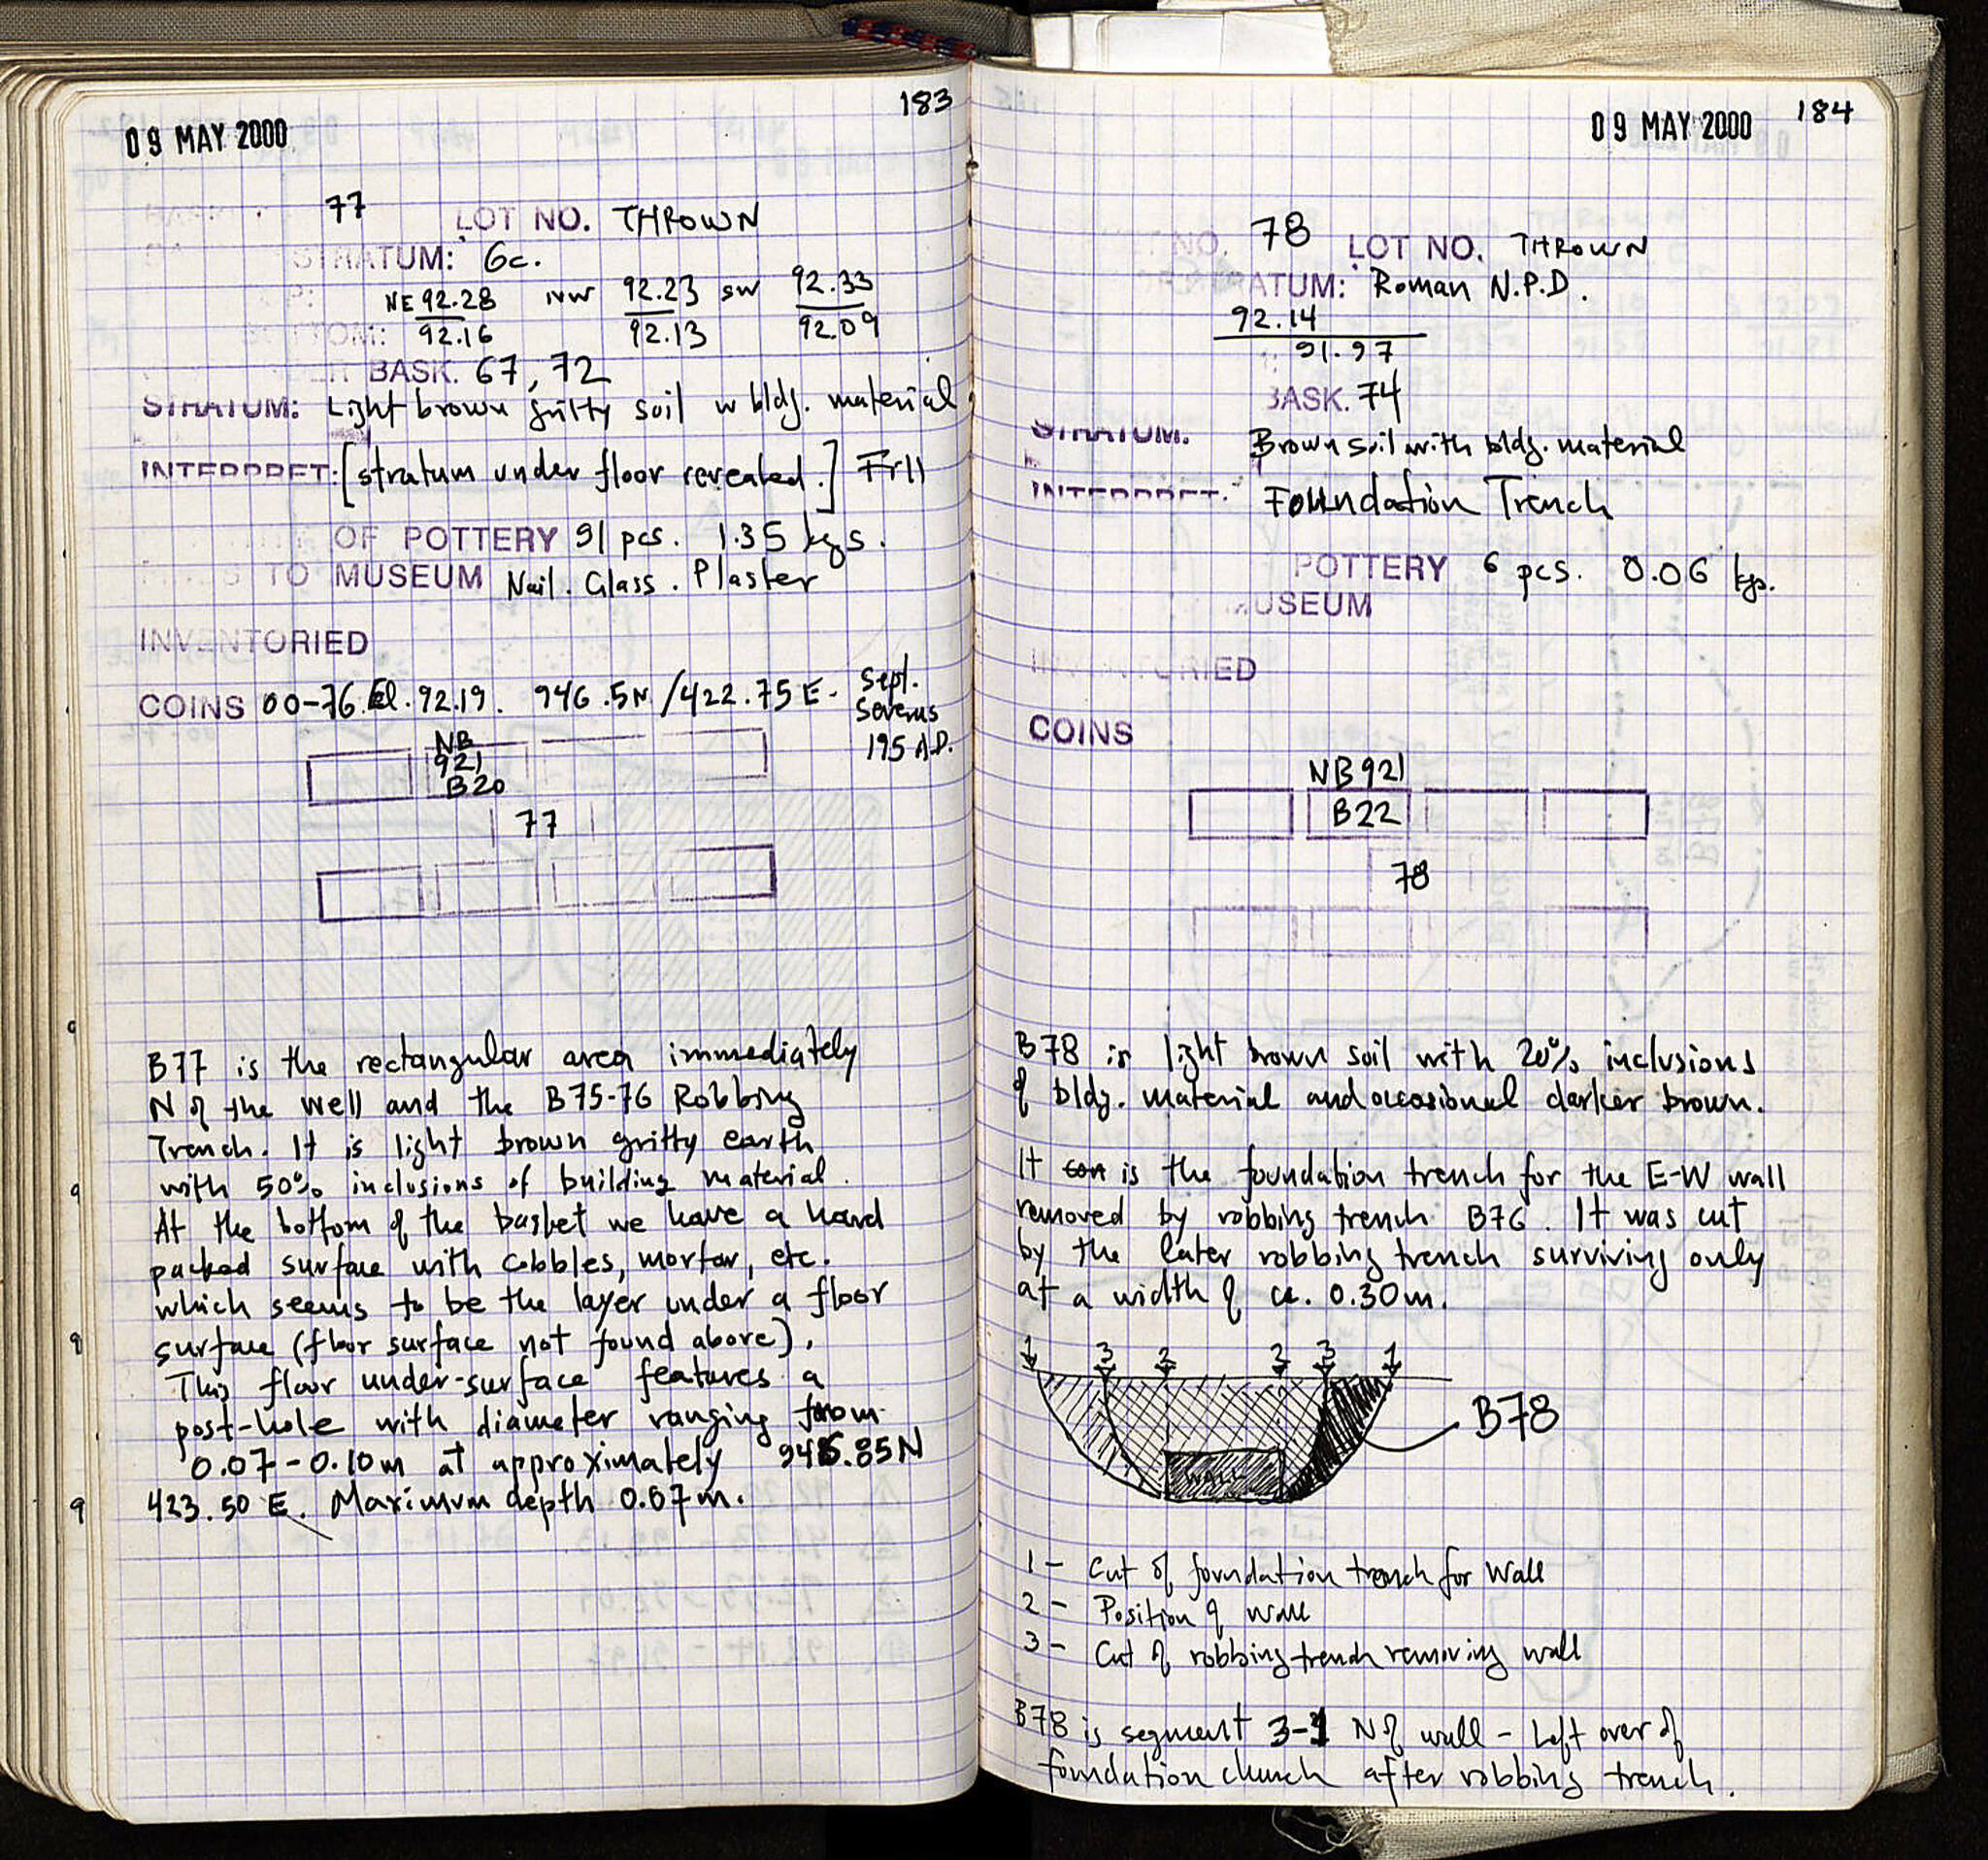 183
09 MAY 2000
77 LOT NO. THROWN
STRATUM: 6c.
NE 92.28 NW 92.23 SW 92.33
BOTTOM: 92.16 92.13 92.09
BASK. 67, 72
STRATUM: Light brown gritty soil w bldg. material
INTERPRET: [stratum under floor revealed.] Fill
OF POTTERY 91 pcs. 1.35 kgs.
TO MUSEUM Nail. Glass. Plaster
INVENTORIED
COINS 00-76. El. 92.19. 946.5N /422.75 E- Sept.
Severus
195 A.D.
NB
921
B20
77
B77 is the rectangular area immediately
N of the well and the B75-76 Robbing
Trench. It is light brown gritty earth
with 50% inclusions of building material.
At the bottom of the basket we have a hard
packed surface with cobbles, mortar, etc.
which seems to be the layer under a floor
surface (floor surface not found above).
This floor under-surface features a
post-hole with diameter ranging from
0.07-0.10m at approximately
423.50 E. Maximum depth 0.07m.
184
09 MAY 2000
NO. 78 LOT NO. THROWN
STRATUM: Roman N.P.D.
92.14
91.97
BASK. 74
STRATUM: Brown soil with bldg. material
INTERPRET: Foundation Trench
POTTERY 6 pcs. 0.06 kgs.
MUSEUM
INVENTORIED
COINS
NB921
B22
78
B78 is light brown soil with 20% inclusions
of bldg. material and occasional darker brown.
It con is the foundation trench for the E-W wall
removed by robbing trench B76. It was cut
by the later robbing trench surviving only
at a width of ca. 0.30m.
1 3 2 2 3 1
B78
WALL
1 - Cut of foundation trench for Wall
2 - Position of wall
3 - Cut of robbing trench removing wall
B78 is segment 3-1 N of wall - Left over of
foundation church after robbing trench.